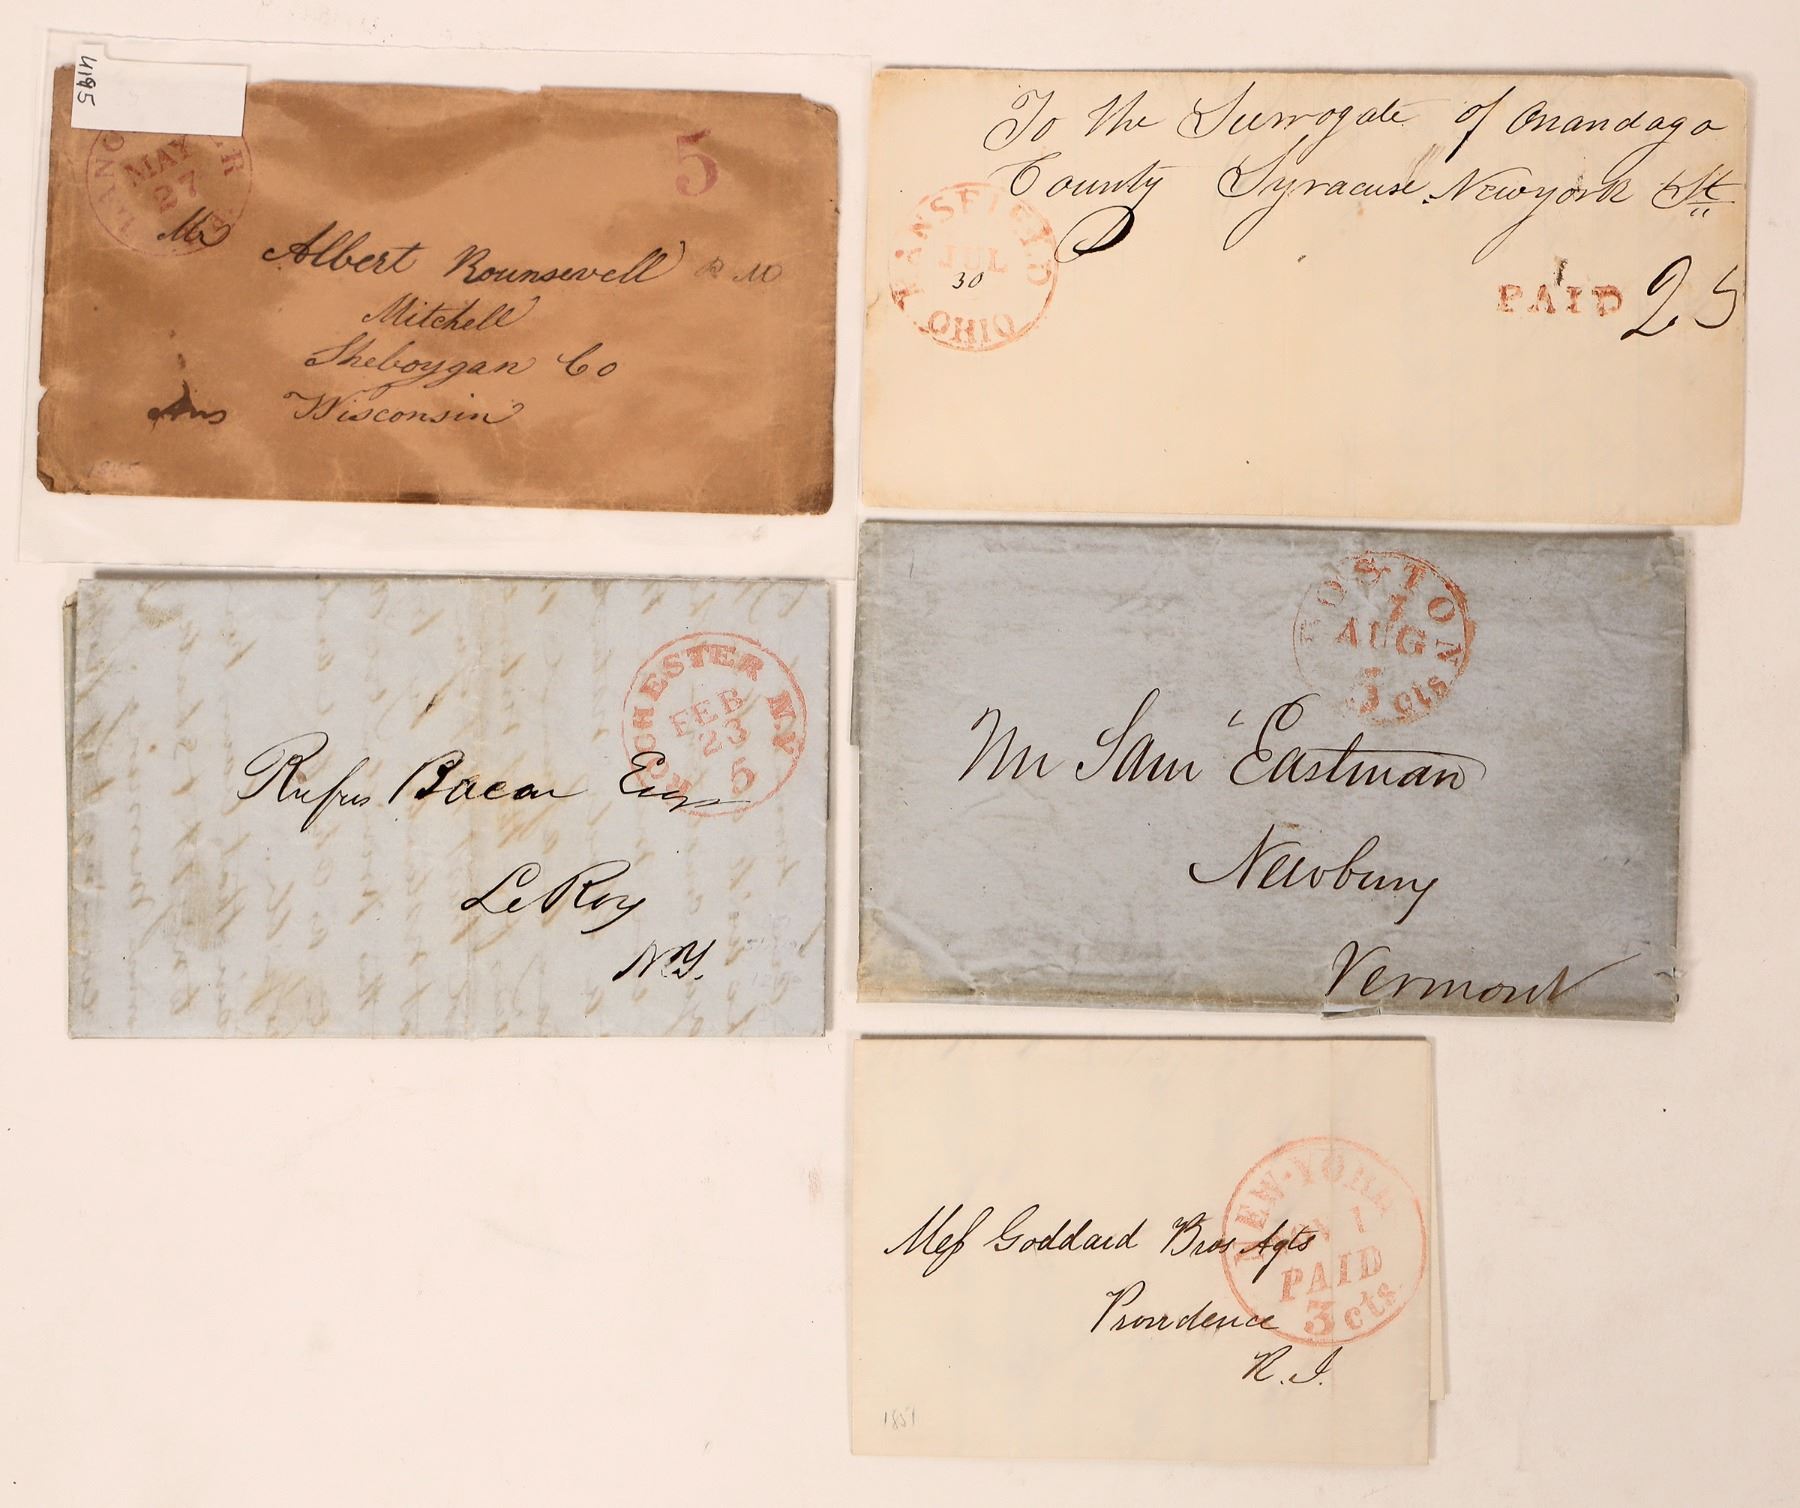 4195
MAY
27
5
Mr
Albert Rounsevell P M
Mitchell
Sheboygan Co
Ans Wisconsin
To the Surrogate of Onandago
County Syracuse Newyork St
RANSFIELD
JUL
30
OHIO
PAID 25
ROCHESTER N.Y
FEB
23
5
Rufus Bacon Esqr
LeRoy
N.Y.
BOSTON
7
AUG
cts
Mr Sam Eastman
Newbury
Vermont
NEW-YORK
1
PAID
3 cts
Mess Goddard Bros Agts
Providence
R.I.
1851